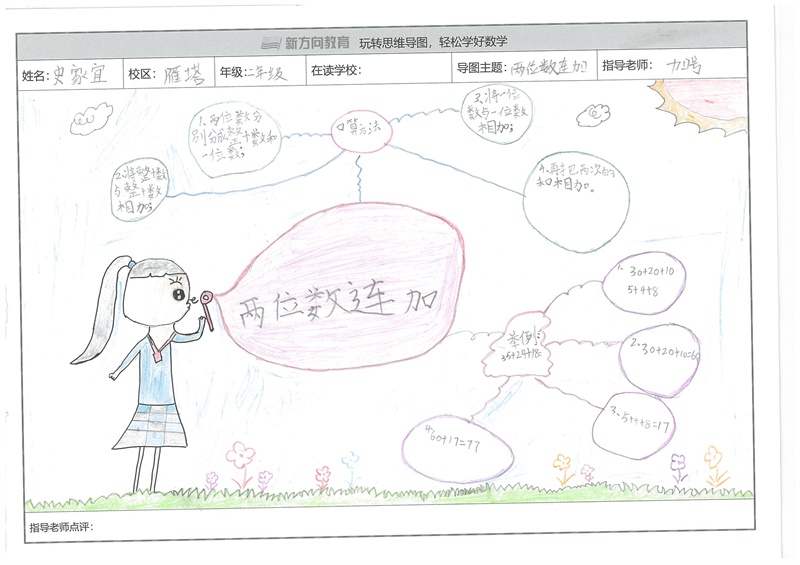 新方向教育 玩转思维导图,轻松学好数学
姓名:史家宜 校区:雁塔 年级:二年级 在读学校: 导图主题:两位数连加 指导老师:
1.两位数分
别分成整十数和
一位数;
口算方法
3.将一位
数与一位数
相加;
2.将整十数
与整十数
相加;
4.再把两次的
和相加。
两位数连加
举例:
35+24+18=
1、30+20+10
5+4+8
2、30+20+10=60
3、5+4+8=17
4、60+17=77
指导老师点评: